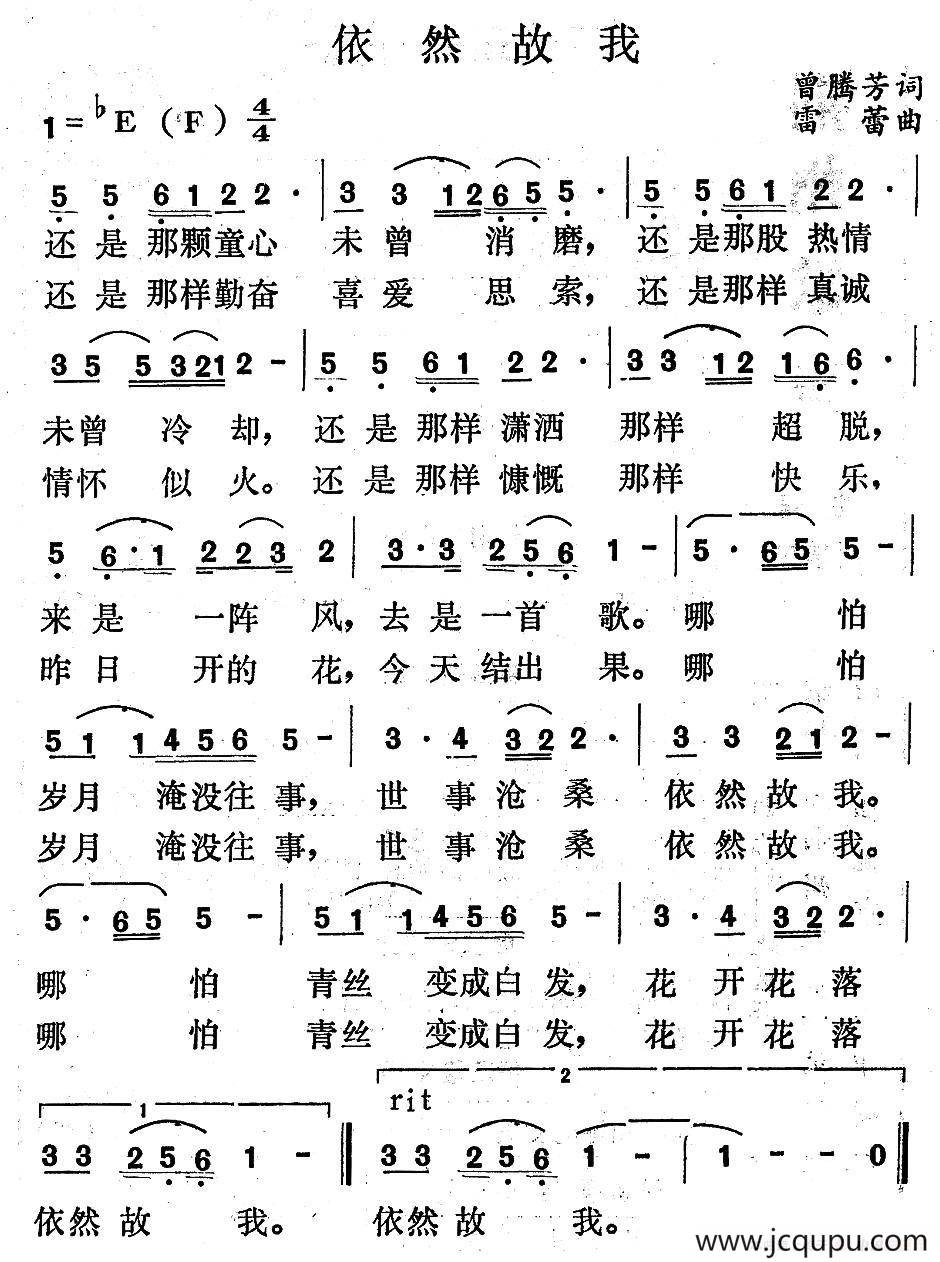 依然故我
曾腾芳词
1=♭E (F) 4/4
雷 蕾曲
5 5 6 1 2 2 · | 3 3 1 2 6 5 5 · | 5 5 6 1 2 2 · |
还是那颗童心 未曾 消磨, 还是那股热情
还是那样勤奋 喜爱 思索, 还是那样真诚
3 5 5 3 2 1 2 - | 5 5 6 1 2 2 · | 3 3 1 2 1 6 6 · |
未曾 冷却, 还是那样潇洒 那样 超脱,
情怀 似火。还是那样慷慨 那样 快乐,
5 6 · 1 2 2 3 2 | 3 · 3 2 5 6 1 - | 5 · 6 5 5 - |
来是 一阵 风, 去是一首 歌。哪 怕
昨日 开的 花, 今天结出 果。哪 怕
5 1 1 4 5 6 5 - | 3 · 4 3 2 2 · | 3 3 2 1 2 - |
岁月 淹没往事, 世事沧桑 依然故我。
岁月 淹没往事, 世事沧桑 依然故我。
5 · 6 5 5 - | 5 1 1 4 5 6 5 - | 3 · 4 3 2 2 · |
哪 怕 青丝 变成白发, 花开花落
哪 怕 青丝 变成白发, 花开花落
1 2
rit
3 3 2 5 6 1 - ‖ 3 3 2 5 6 1 - | 1 - - 0 ‖
依然故 我。 依然故 我。
www.jcqupu.com